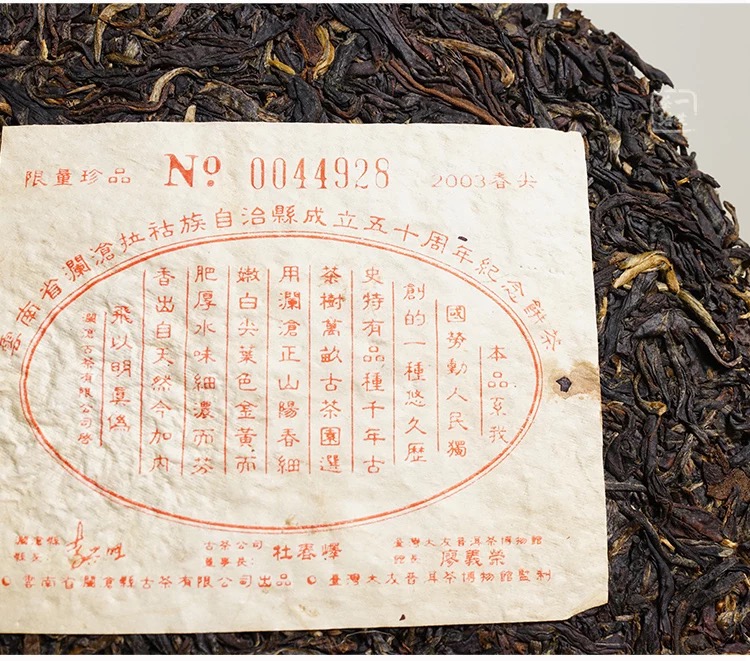 限量珍品 № 0044928 2003春尖
雲南省瀾滄拉祜族自治縣成立五十周年紀念餅茶
本品系我
國勞動人民獨
創的一種悠久歷
史特有品種千年古
茶樹萬畝古茶園選
用瀾滄正山陽春細
嫩白尖葉色金黃而
肥厚水味細濃而芬
香出自天然今加內
飛以明真偽
瀾滄古茶有限公司啓
瀾滄縣
縣長
古茶公司
董事長: 杜春嶧
臺灣大友普洱茶博物館
館長 廖義榮
雲南省瀾滄縣古茶有限公司出品 臺灣大友普洱茶博物館監制